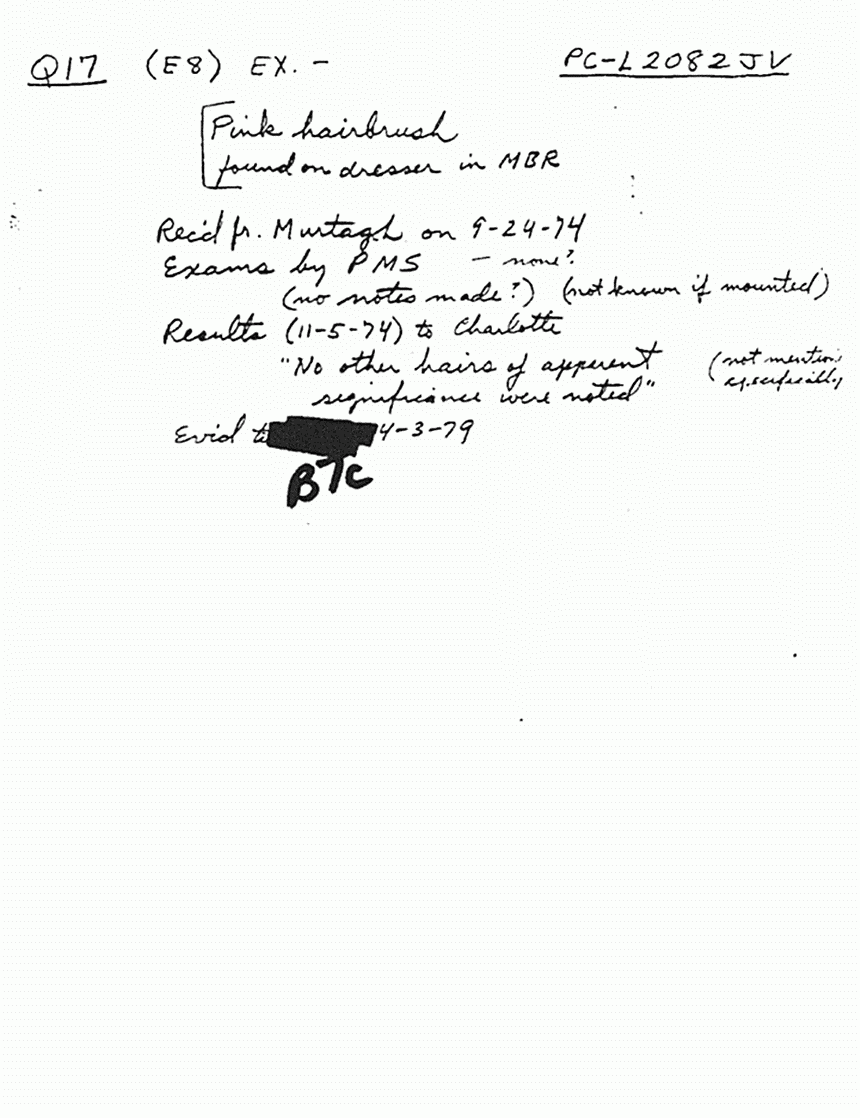 Q17 (E8) EX. - PC-L2082JV
Pink hairbrush
found on dresser in MBR
Rec'd fr. Murtagh on 9-24-74
Exams by PMS - none?
(no notes made?) (not known if mounted)
Results (11-5-74) to Charlotte
"No other hairs of apparent (not mention
significance were noted"
Evid to 4-3-79
B7C